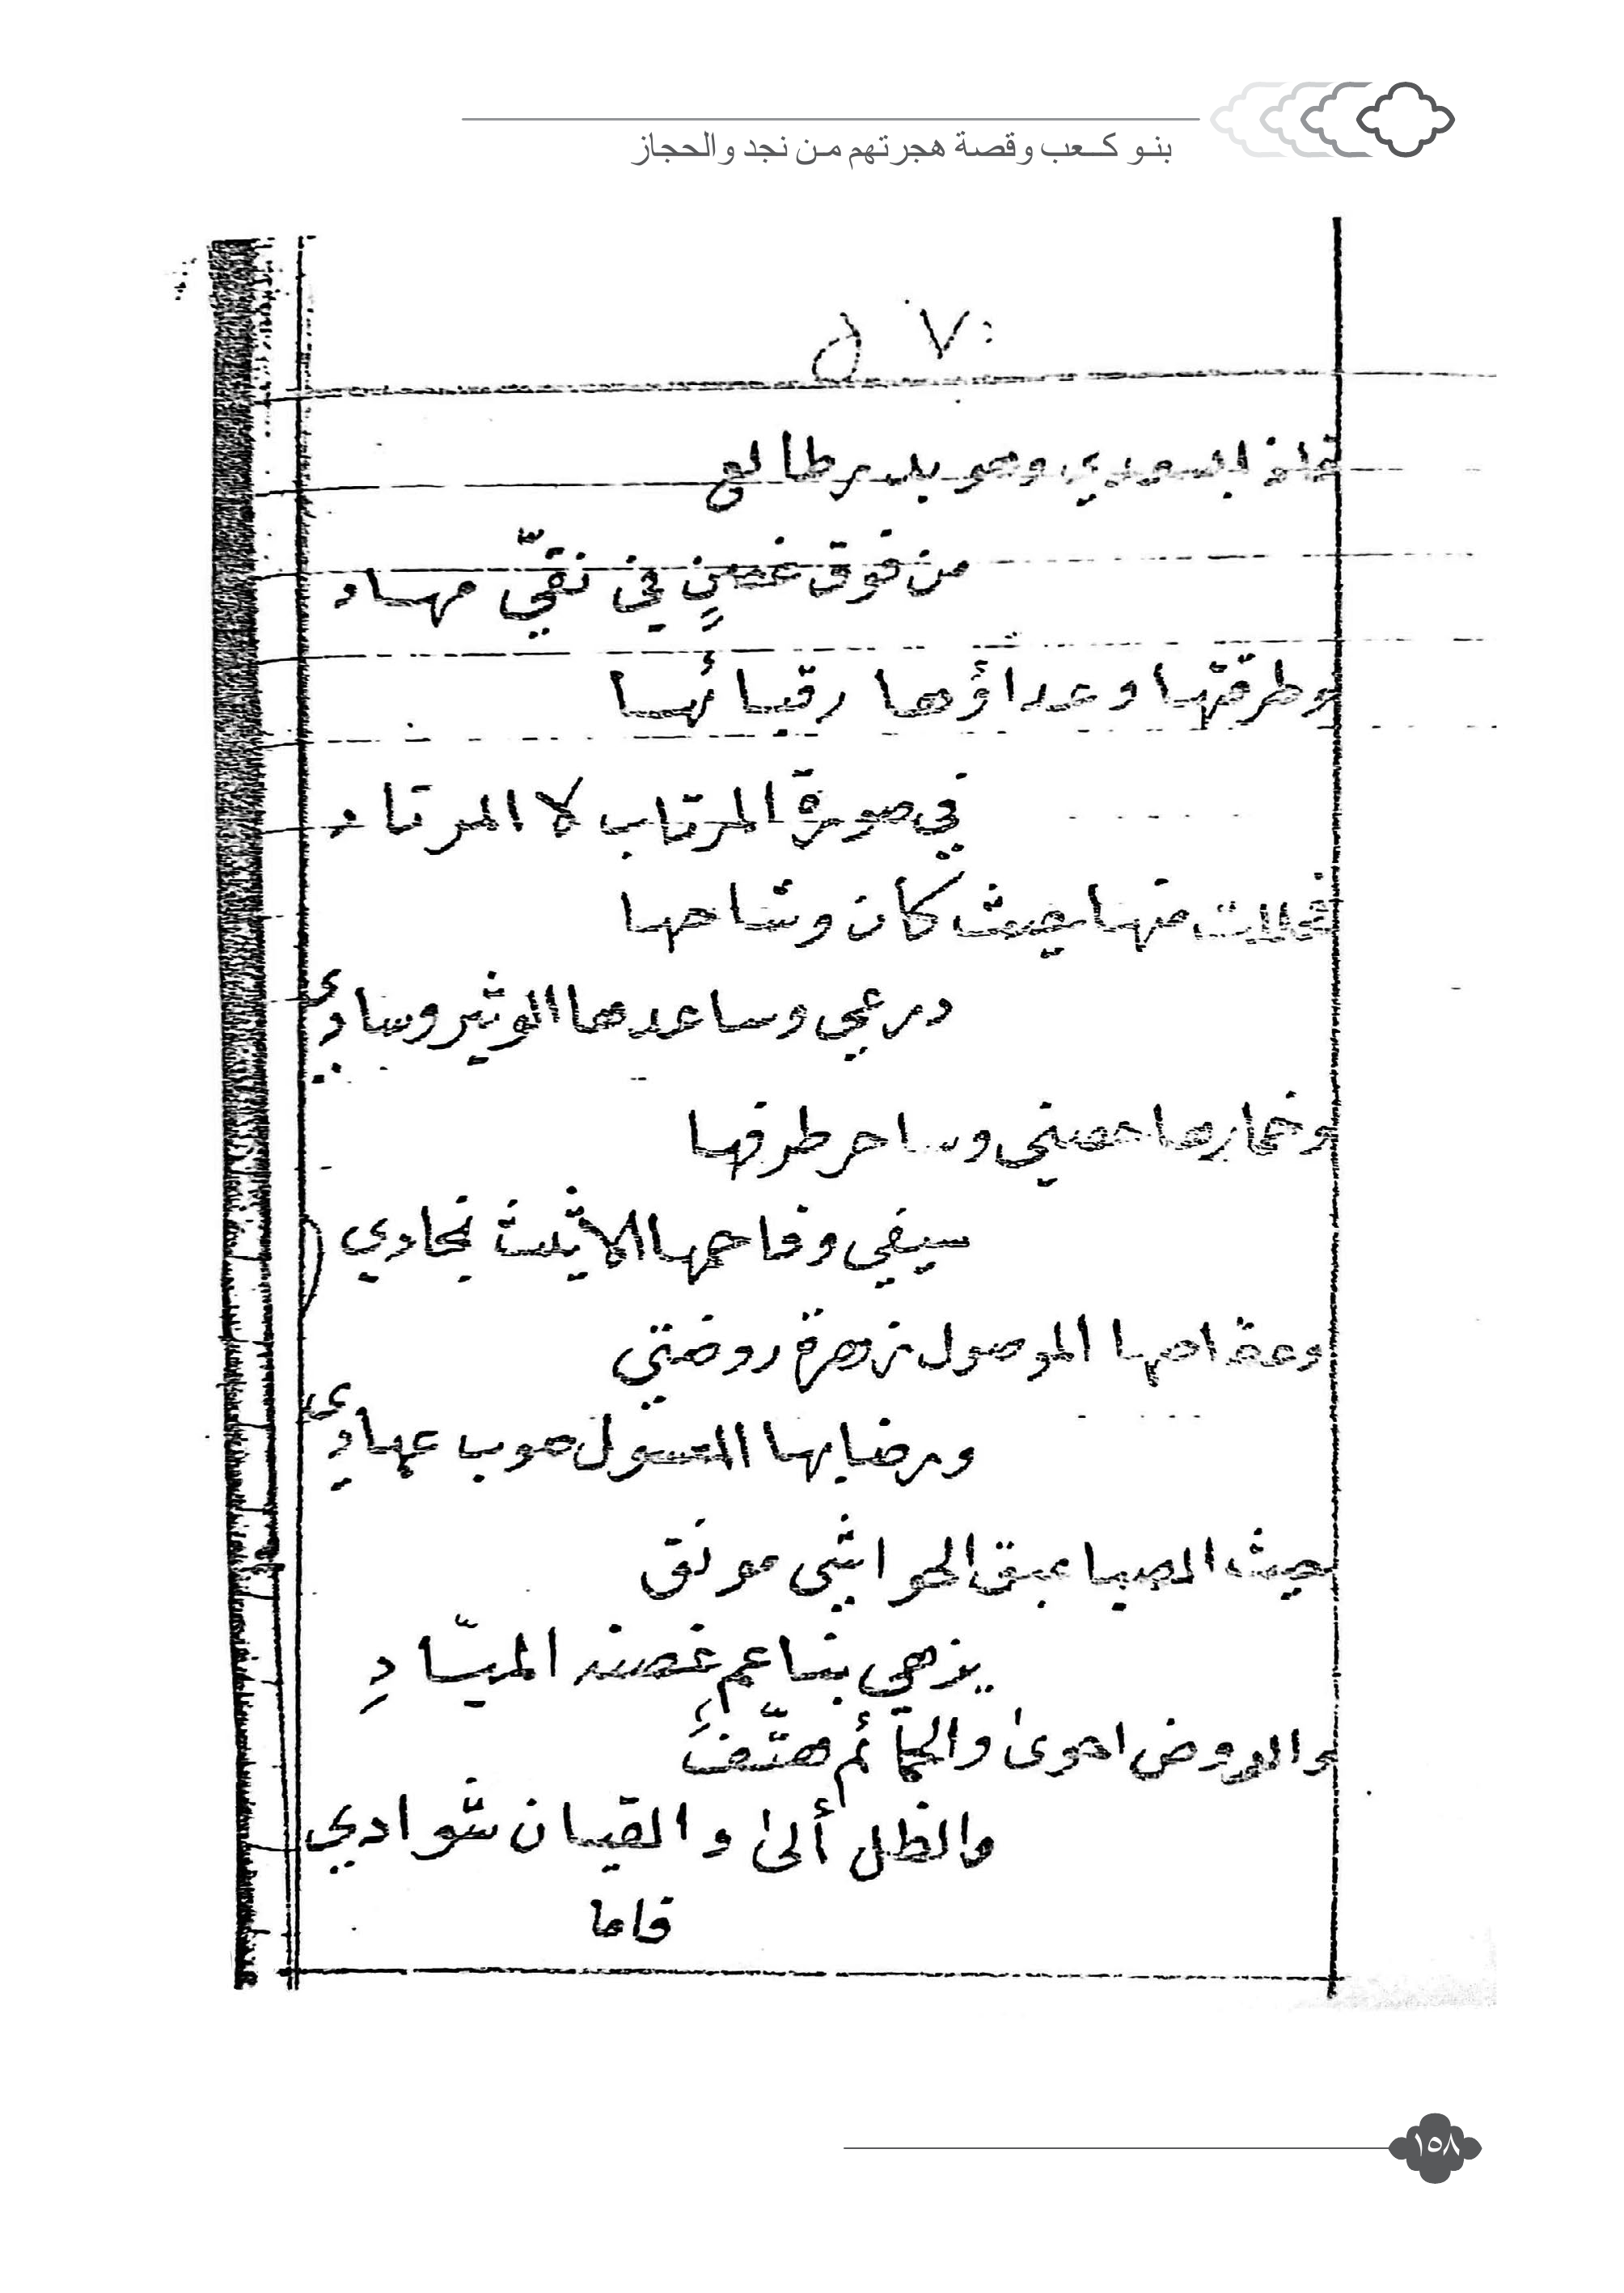 بنو كعب وقصة هجرتهم من نجد والحجاز
٧٠
وهو بدر طالع
من فوق غصنٍ في نقيّ مهاد
وطرقتها وعداؤها رقبائها
في صورة المرتاب لا المرتاد
منها بحيث كان وشاحها
درعي وساعدها الوثير وسادي
وخمارها حصني وساحر طرفها
سيفي وفاحمها الاثيث نجادي
وعقاصها الموصول زهرة روضتي
ورضابها المعسول صوب عهادي
بحيث الصبا عبق الحواشي مونق
يزهي بناعم غصنه الميّادِ
والروض احوى والحمائم هتّفٌ
والظل ألمى والقيان شوادي
فاما
١٥٨